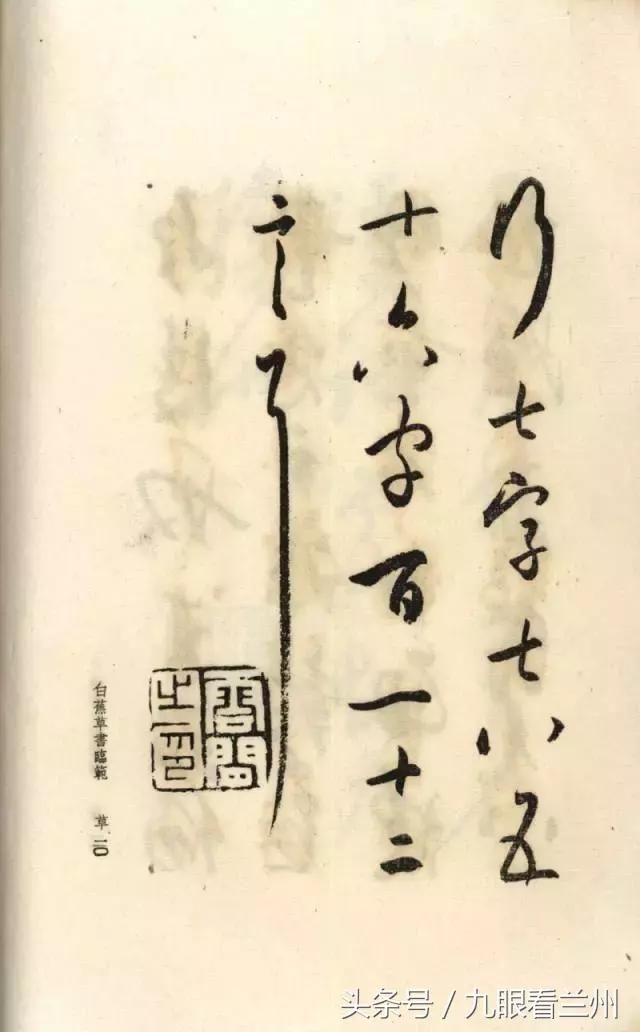 行七字七八五
十六字百一十二
言耳
白蕉草書臨範 草 二〇
头条号 / 九眼看兰州